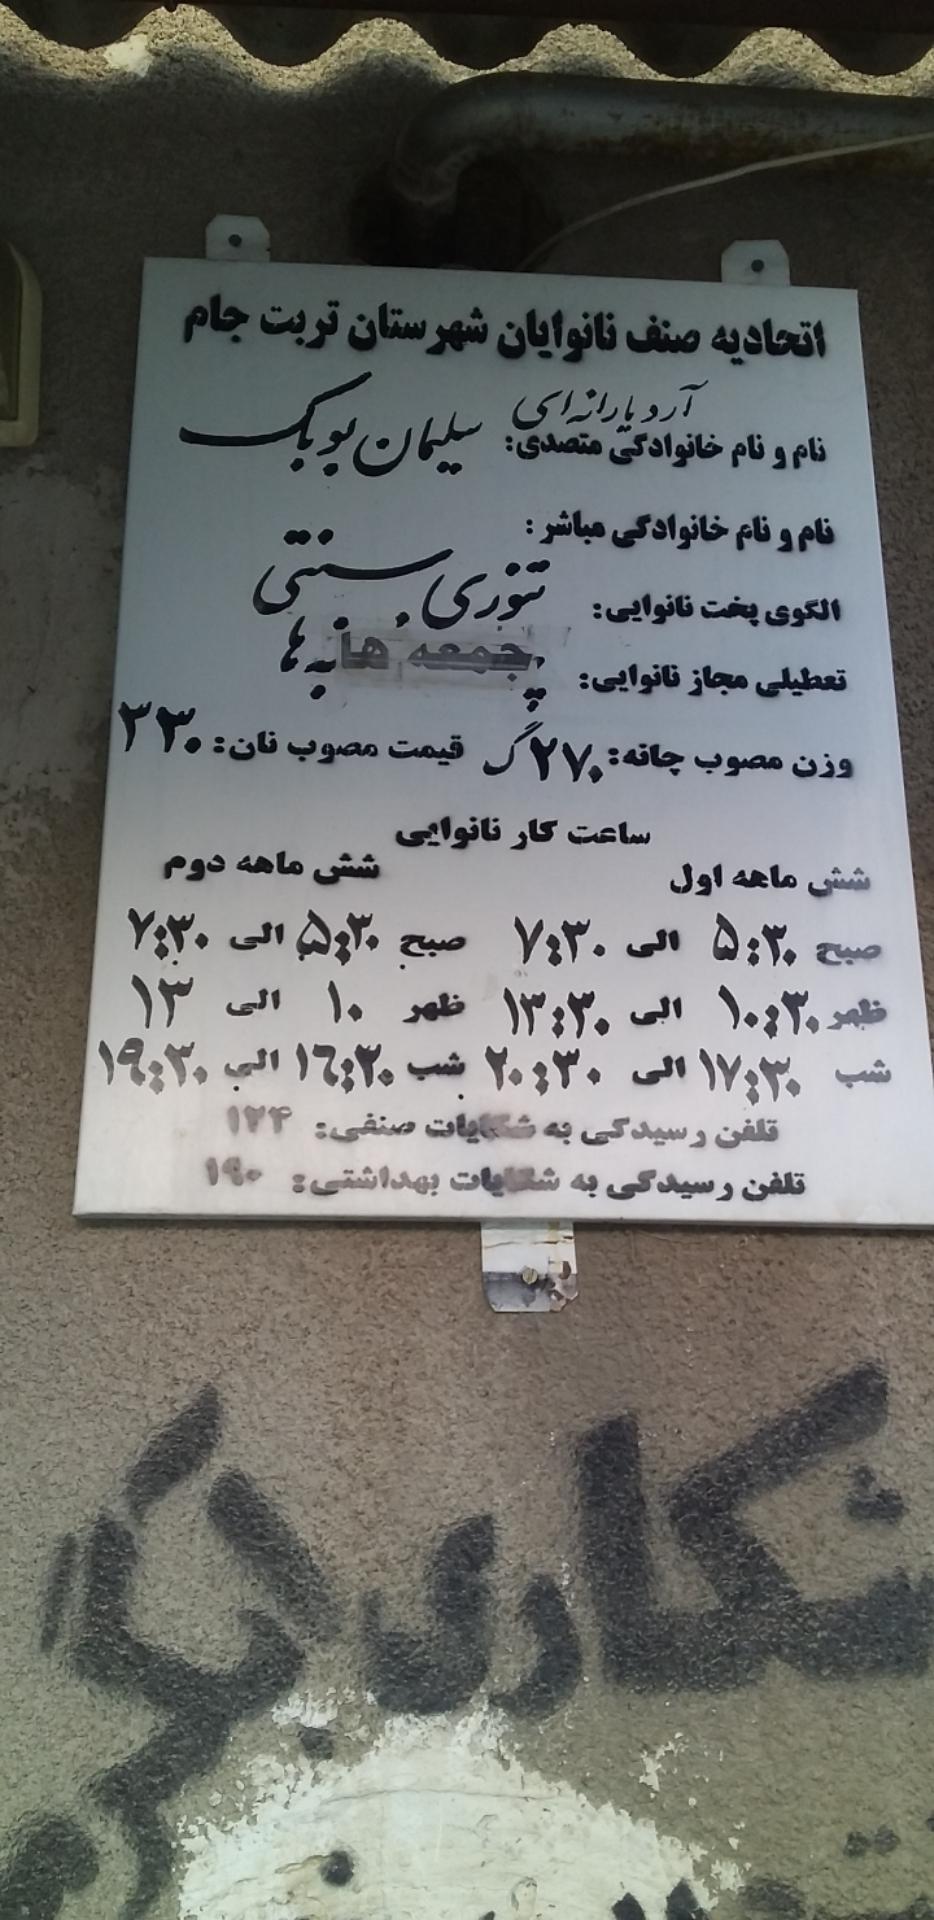 اتحادیه صنف نانوایان شهرستان تربت جام
آرد یارانه‌ای
نام و نام خانوادگی متصدی: سلیمان پوپک
نام و نام خانوادگی مباشر :
الگوی پخت نانوایی: تنوری سنتی
تعطیلی مجاز نانوایی: جمعه ها
وزن مصوب چانه: ۲۷۰ گ قیمت مصوب نان: ۳۳۰
ساعت کار نانوایی
شش ماهه اول شش ماهه دوم
صبح ۵:۳۰ الی ۷:۳۰ صبح ۵:۳۰ الی ۷:۳۰
ظهر ۱۰:۳۰ الی ۱۳:۳۰ ظهر ۱۰ الی ۱۳
شب ۱۷:۳۰ الی ۲۰:۳۰ شب ۱۶:۳۰ الی ۱۹:۳۰
تلفن رسیدگی به شکایات صنفی: ۱۲۴
تلفن رسیدگی به شکایات بهداشتی: ۱۹۰